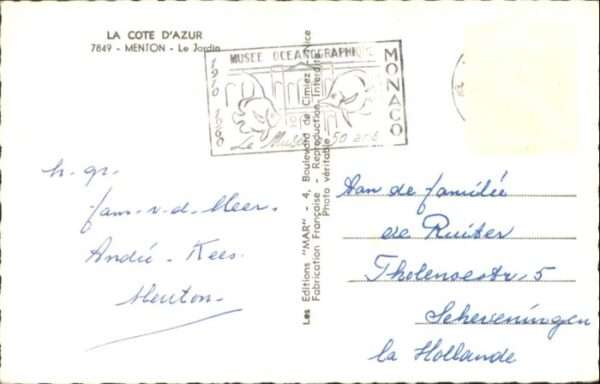 LA COTE D'AZUR
7849 - MENTON - Le Jardin
MUSEE OCEANOGRAPHIQUE
MONACO
1910 1960
Le Musée a 50 ans
h. gr.
fam. v. d. Meer.
André - Kees.
Menton.
Les Editions "MAR" - 4, Boulevard de Cimiez - Nice
Fabrication Française - Reproduction Interdite
Photo véritable
Aan de familie
de Ruiter
Tholensestr. 5
Scheveningen
la Hollande